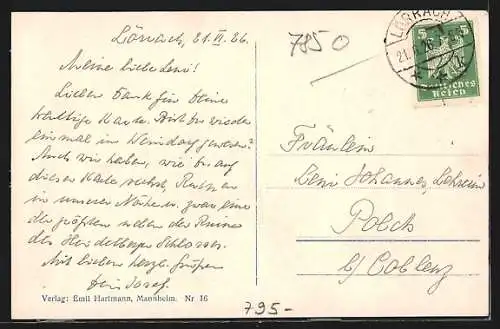 Lörrach, 21.VI.26.
Meine liebe Leni!
Lieben Dank für Deine
Karte. Bist Du wieder
einmal in gewesen?
Auch wir haben, wie Du auf
dieser Karte siehst, Ruinen
in unserer Nähe, zwar eine
der größten neben der Ruine
des Heidelberger Schlosses.
Mit lieben herzl. Grüßen
Dein Josef.
Verlag: Emil Hartmann, Mannheim. Nr 16
7850
795-
LÖRRACH
21.
5 5
Deutsches
Reich
Fräulein
Leni Johannes, Lehrerin
Polch
b/Coblenz